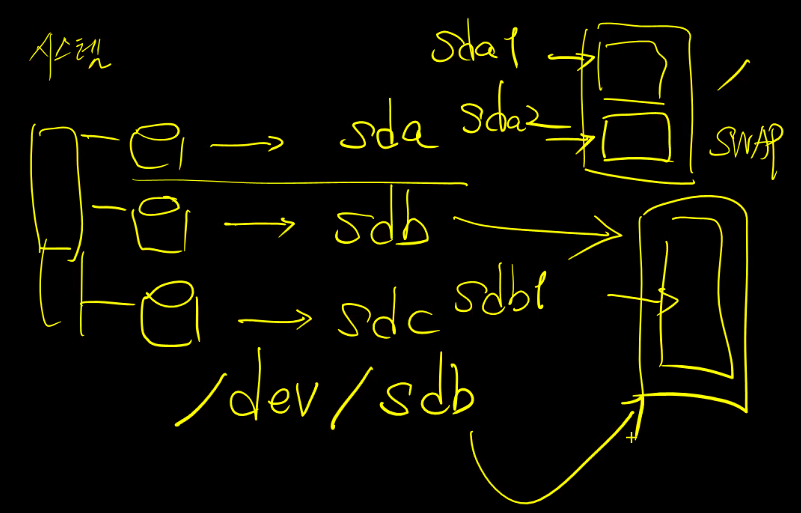 시스템
sda1
/
sda
sda2
SWAP
sdb
sdb1
sdc
/dev/sdb